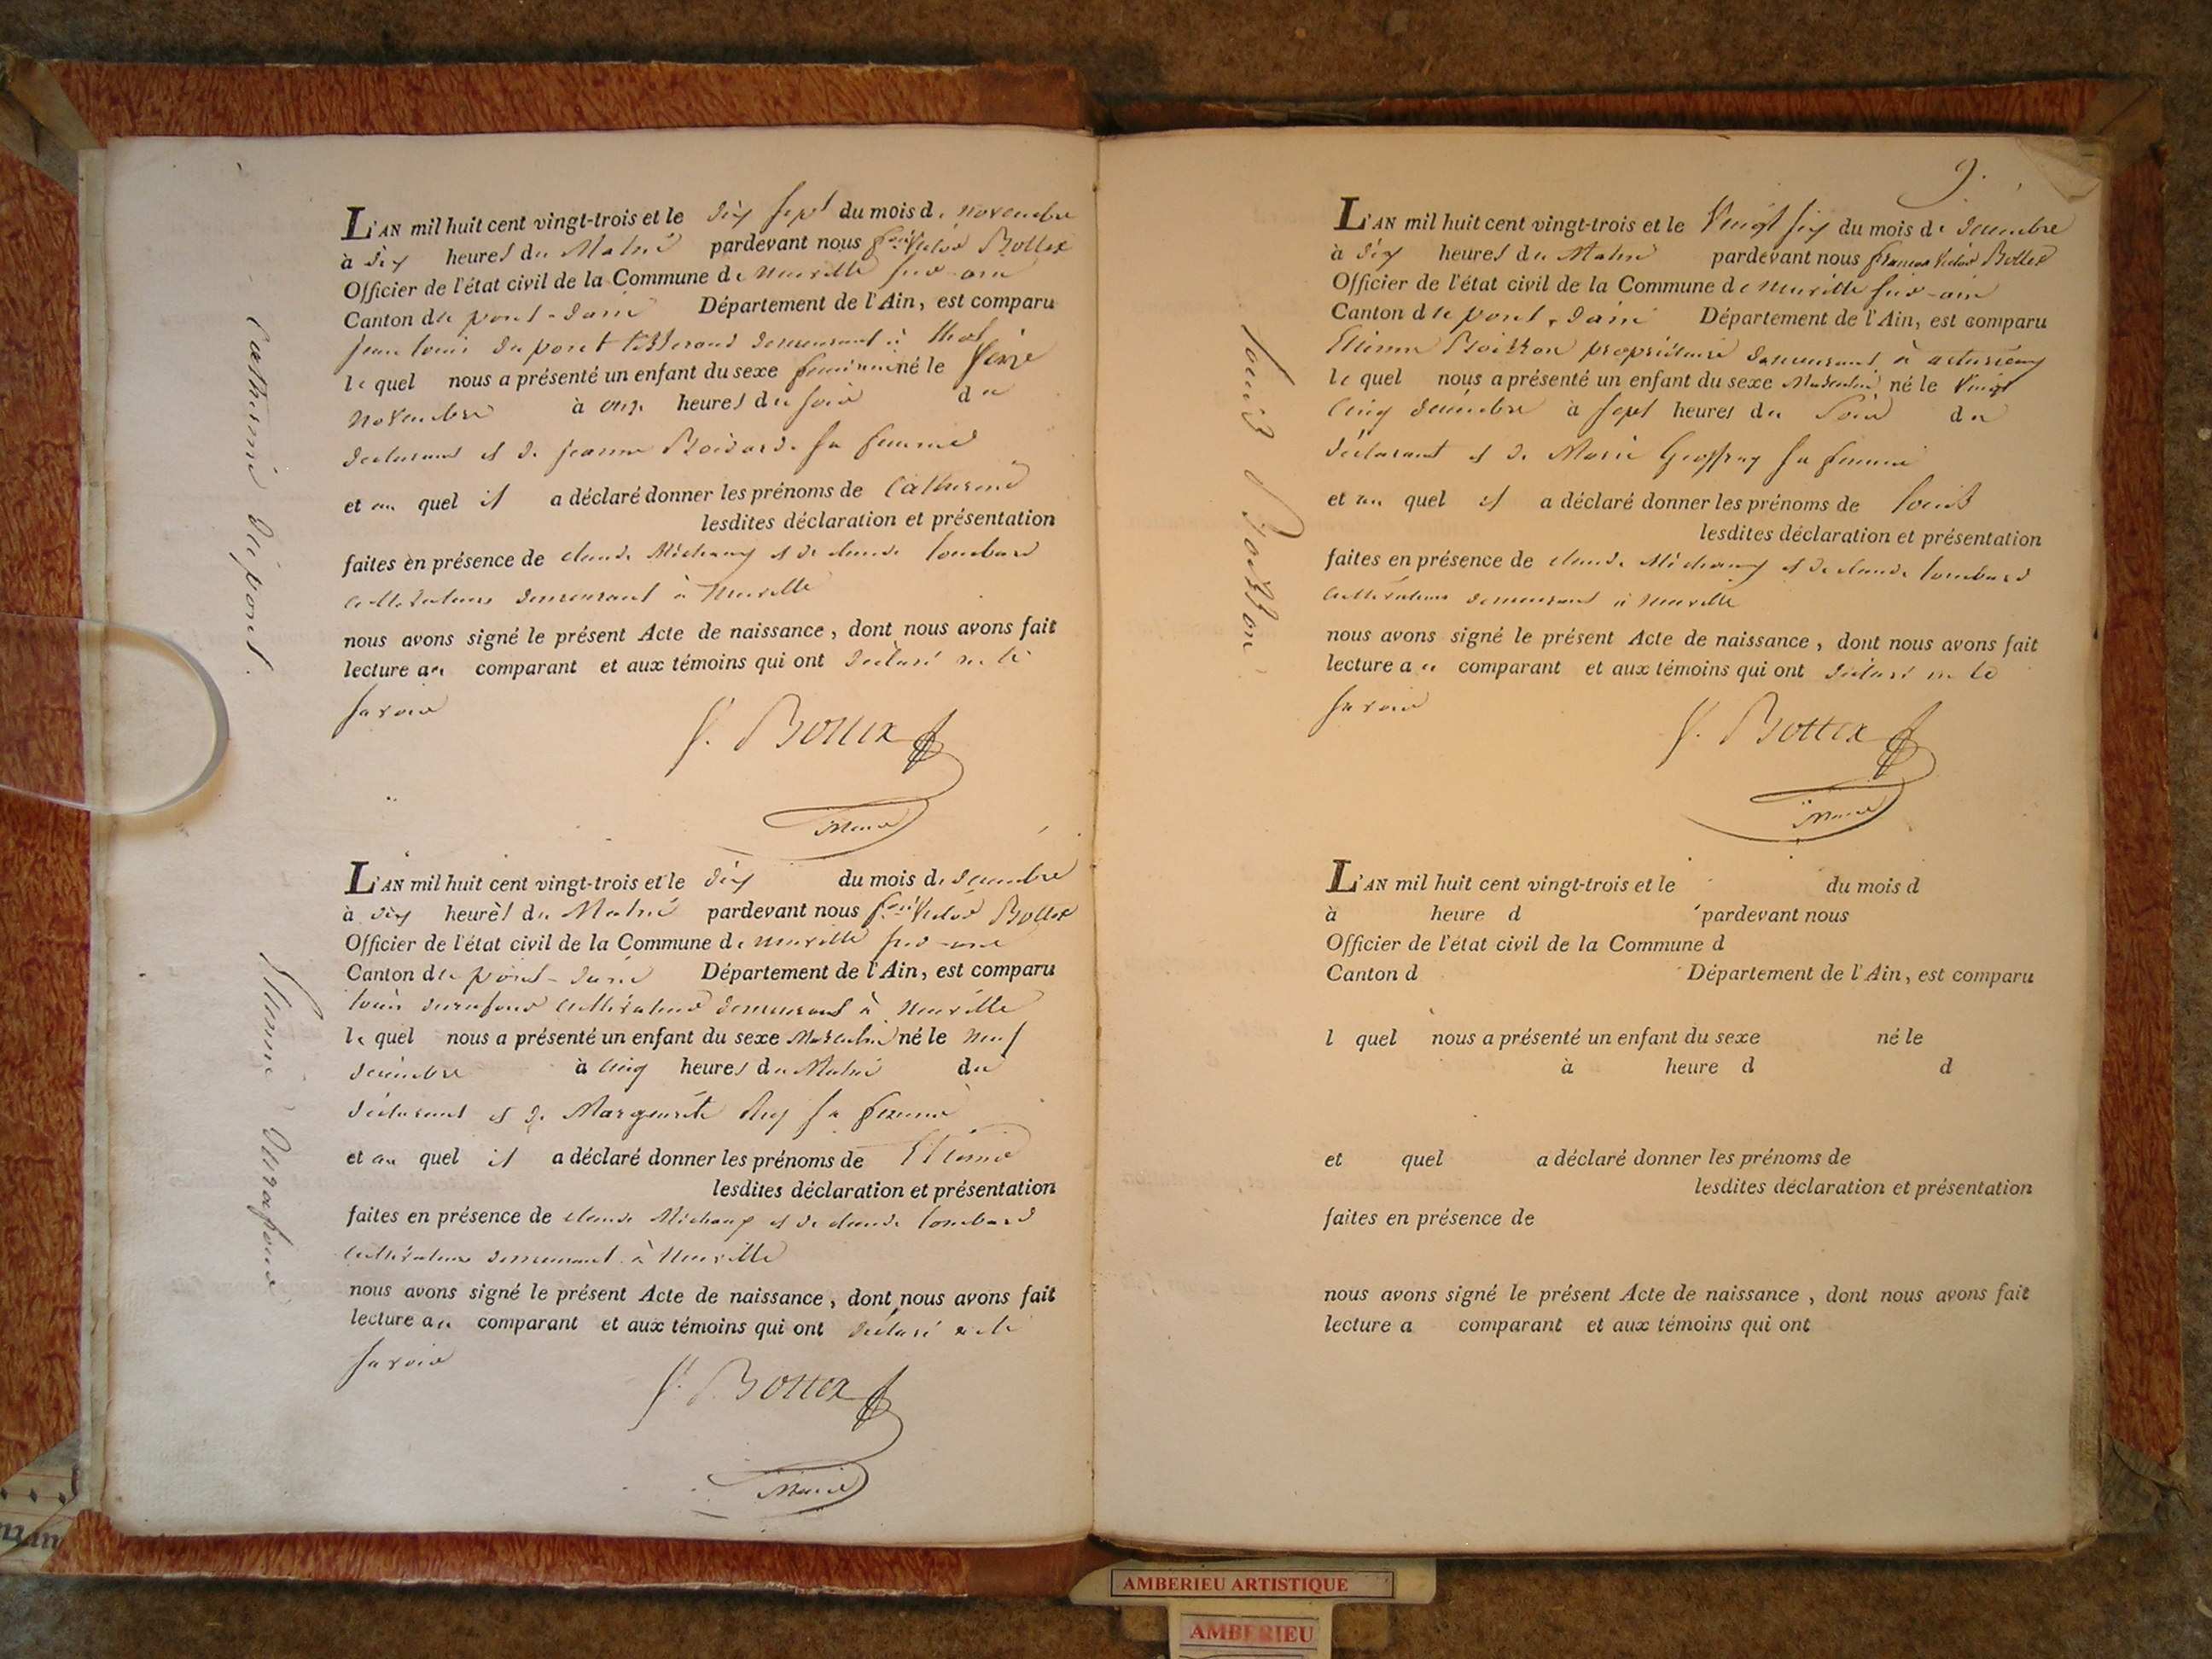 Catherine Dupont
L'AN mil huit cent vingt-trois et le dix sept du mois de novembre
à dix heures du Matin pardevant nous fois Victor Bottex
Officier de l'état civil de la Commune de neuville sur-ain
Canton de pont-dain Département de l'Ain, est comparu
jean louis dupont tisserand demeurant à thol
lequel nous a présenté un enfant du sexe feminin né le seize
novembre à onze heures du soir du
declarant et de jeanne sa femme
et au quel il a déclaré donner les prénoms de Catherine
lesdites déclaration et présentation
faites en présence de claude Michaux et de claude lombard
cultivateurs demeurant à neuville
nous avons signé le présent Acte de naissance, dont nous avons fait
lecture au comparant et aux témoins qui ont déclaré ne le
savoir
V. Bottex
Maire
Etienne Durafour
L'AN mil huit cent vingt-trois et le dix du mois de decembre
à dix heures du Matin pardevant nous fois Victor Bottex
Officier de l'état civil de la Commune de neuville sur-ain
Canton de pont-dain Département de l'Ain, est comparu
louis durafour cultivateur demeurant à neuville
lequel nous a présenté un enfant du sexe Masculin né le neuf
decembre à cinq heures du Matin du
déclarant et de Marguerite sa femme
et au quel il a déclaré donner les prénoms de Etienne
lesdites déclaration et présentation
faites en présence de claude Michaux et de claude lombard
cultivateurs demeurant à neuville
nous avons signé le présent Acte de naissance, dont nous avons fait
lecture au comparant et aux témoins qui ont déclaré ne le
savoir
V. Bottex
Maire
9.
Louis Boisson
L'AN mil huit cent vingt-trois et le Vingt six du mois de decembre
à dix heures du Matin pardevant nous françois Victor Bottex
Officier de l'état civil de la Commune de neuville sur-ain
Canton de pont-dain Département de l'Ain, est comparu
Etienne Boisson propriétaire demeurant à
lequel nous a présenté un enfant du sexe Masculin né le Vingt
cinq decembre à sept heures du Soir du
déclarant et de Marie Geoffray sa femme
et au quel il a déclaré donner les prénoms de louis
lesdites déclaration et présentation
faites en présence de claude Michaux et de claude lombard
cultivateurs demeurant à neuville
nous avons signé le présent Acte de naissance, dont nous avons fait
lecture au comparant et aux témoins qui ont déclaré ne le
savoir
V. Bottex
Maire
L'AN mil huit cent vingt-trois et le du mois d
à heure d pardevant nous
Officier de l'état civil de la Commune d
Canton d Département de l'Ain, est comparu
l quel nous a présenté un enfant du sexe né le
à heure d d
et quel a déclaré donner les prénoms de
lesdites déclaration et présentation
faites en présence de
nous avons signé le présent Acte de naissance, dont nous avons fait
lecture a comparant et aux témoins qui ont
AMBERIEU ARTISTIQUE
AMBERIEU